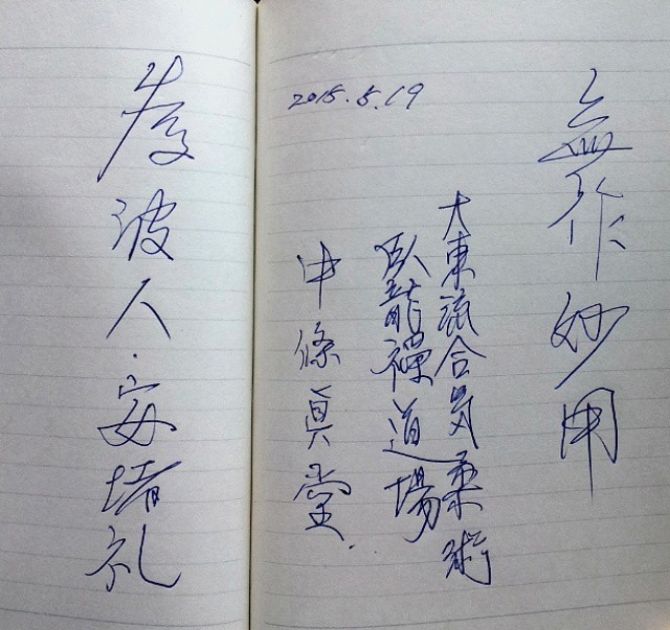 無作妙用
2015.5.19
大東流合気柔術
臥龍禪道場
中條眞堂
波人・安堵礼